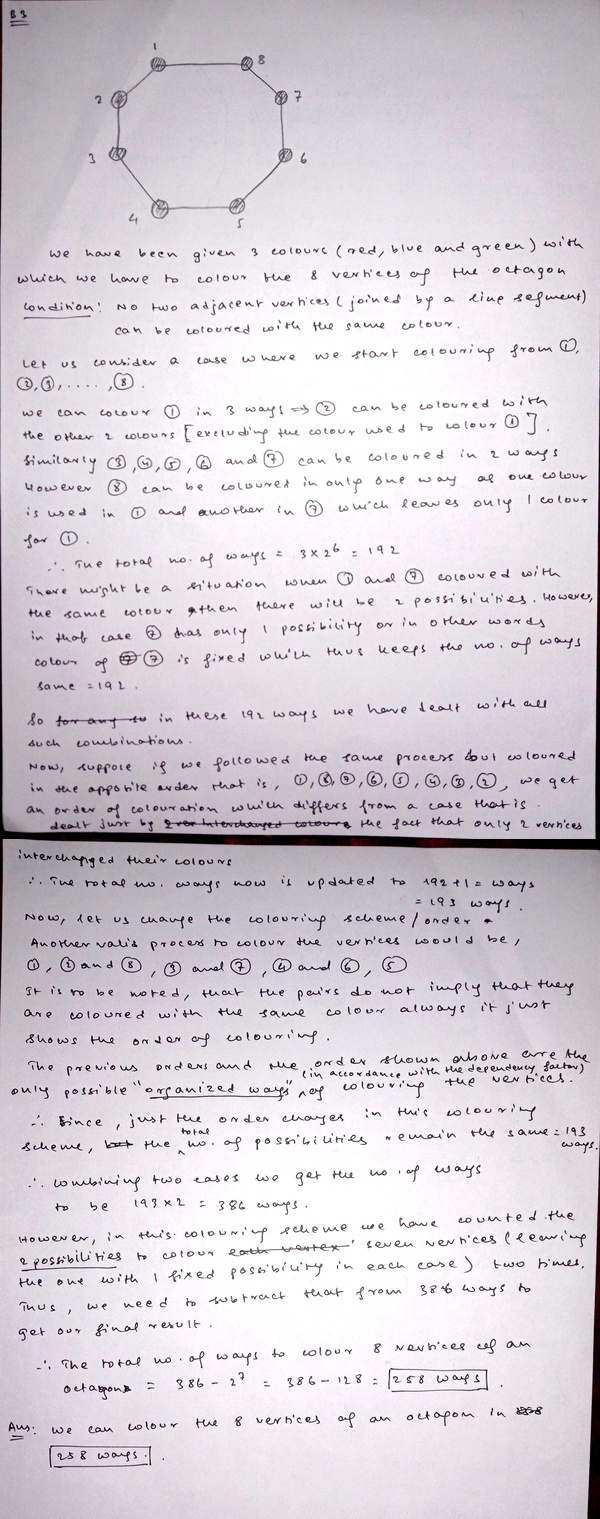 B3
1
8
2
7
3
6
4
5
We have been given 3 colours (red, blue and green) with
which we have to colour the 8 vertices of the octagon
Condition: No two adjacent vertices (joined by a line segment)
can be coloured with the same colour.
Let us consider a case where we start colouring from ①,
②,③,.....,⑧.
We can colour ① in 3 ways ⇒ ② can be coloured with
the other 2 colours [excluding the colour used to colour ①].
Similarly ③,④,⑤,⑥ and ⑦ can be coloured in 2 ways
However ⑧ can be coloured in only one way as one colour
is used in ① and another in ⑦ which leaves only 1 colour
for ①.
∴ The total no. of ways = 3×2⁶ = 192
There might be a situation when ① and ⑦ coloured with
the same colour then there will be 2 possibilities. However,
in that case ⑦ has only 1 possibility or in other words
colour of ⑦ is fixed which thus keeps the no. of ways
same = 192.
So in these 192 ways we have dealt with all
such combinations.
Now, suppose if we followed the same process but coloured
in the opposite order that is, ①,⑧,⑦,⑥,⑤,④,③,②, we get
an order of colouration which differs from a case that is
dealt just by the fact that only 2 vertices
interchanged their colours
∴ The total no. ways now is updated to 192+1 = ways
= 193 ways.
Now, let us change the colouring scheme/order
Another valid process to colour the vertices would be,
①, ② and ⑧, ③ and ⑦, ④ and ⑥, ⑤
It is to be noted, that the pairs do not imply that they
are coloured with the same colour always it just
shows the order of colouring.
The previous orders and the order shown above are the
only possible "organized ways" (in accordance with the dependency factor) of colouring the vertices.
∴ Since, just the order changes in this colouring
scheme, the total no. of possibilities remain the same = 193
ways.
∴ Combining two cases we get the no. of ways
to be 193×2 = 386 ways.
However, in this colouring scheme we have counted the
2 possibilities to colour seven vertices (leaving
the one with 1 fixed possibility in each case) two times.
Thus, we need to subtract that from 386 ways to
get our final result.
∴ The total no. of ways to colour 8 vertices of an
octagon = 386 - 2⁷ = 386 - 128 = 258 ways.
Ans: We can colour the 8 vertices of an octagon in
258 ways.